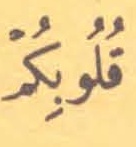 قُلُوبِكُمْ